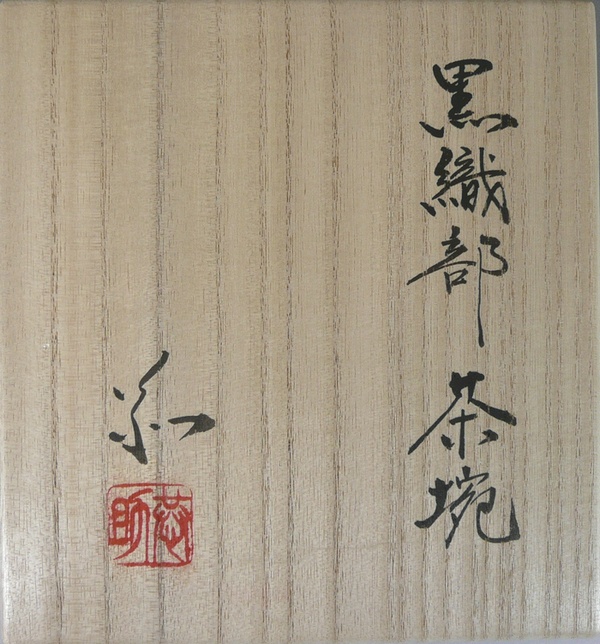 黒織部 茶埦